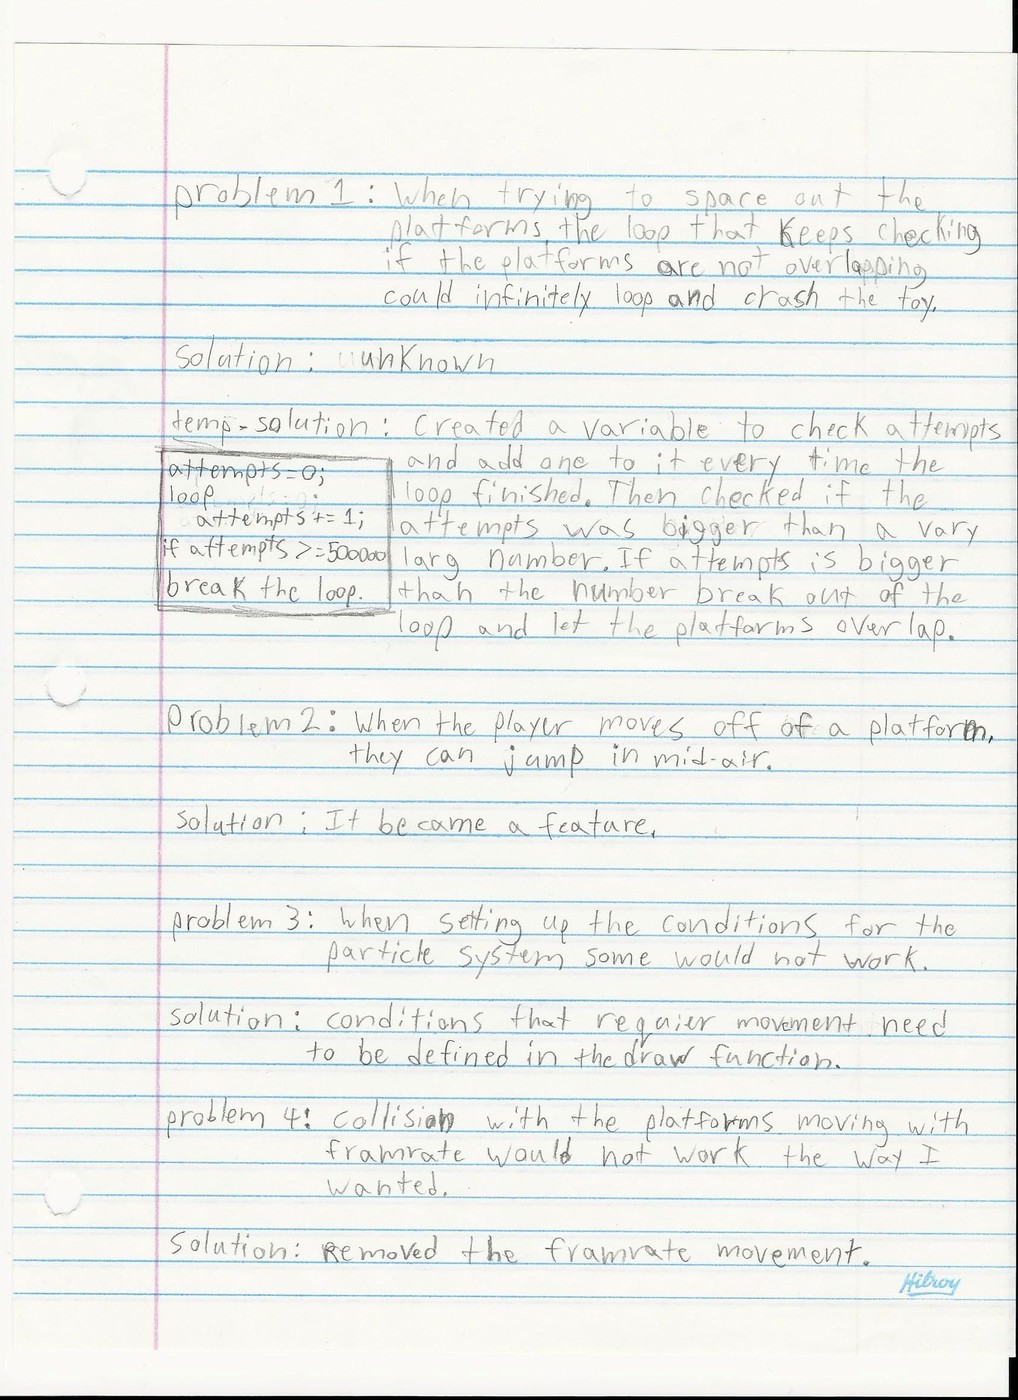 problem 1: When trying to space out the
platforms, the loop that keeps checking
if the platforms are not overlapping
could infinitely loop and crash the toy.
solution: unknown
temp-solution: Created a variable to check attempts
and add one to it every time the
loop finished. Then checked if the
attempts was bigger than a vary
larg number. If attempts is bigger
than the number break out of the
loop and let the platforms overlap.
attempts=0;
loop
attempts += 1;
if attempts >=500000
break the loop.
Problem 2: When the player moves off of a platform,
they can jump in mid-air.
solution: It became a feature.
problem 3: When setting up the conditions for the
particle system some would not work.
solution: conditions that requier movement need
to be defined in the draw function.
problem 4: collision with the platforms moving with
framrate would not work the way I
wanted.
Solution: Removed the framrate movement.
Hilroy